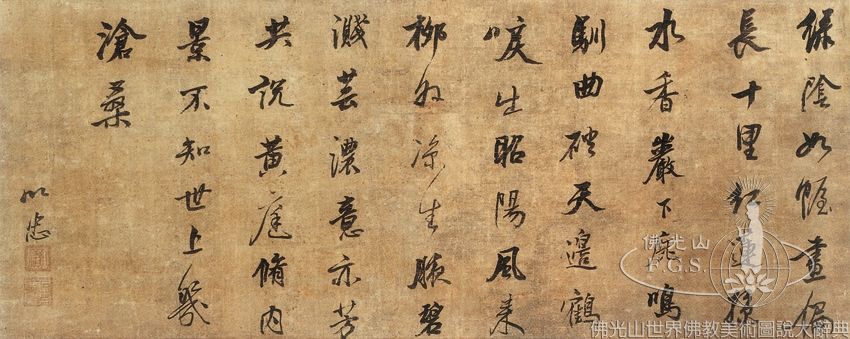 綠陰如幄晝偏
長十里紅蓮
水香巖下鹿鳴
馴曲砌天邊鶴
唳出昭陽風來
柳涼生腋碧
濺芸濃意亦芳
共說黃庭脩內
景不知世上幾
滄桑
佛光山
F.G.S.
佛光山世界佛教美術圖說大辭典